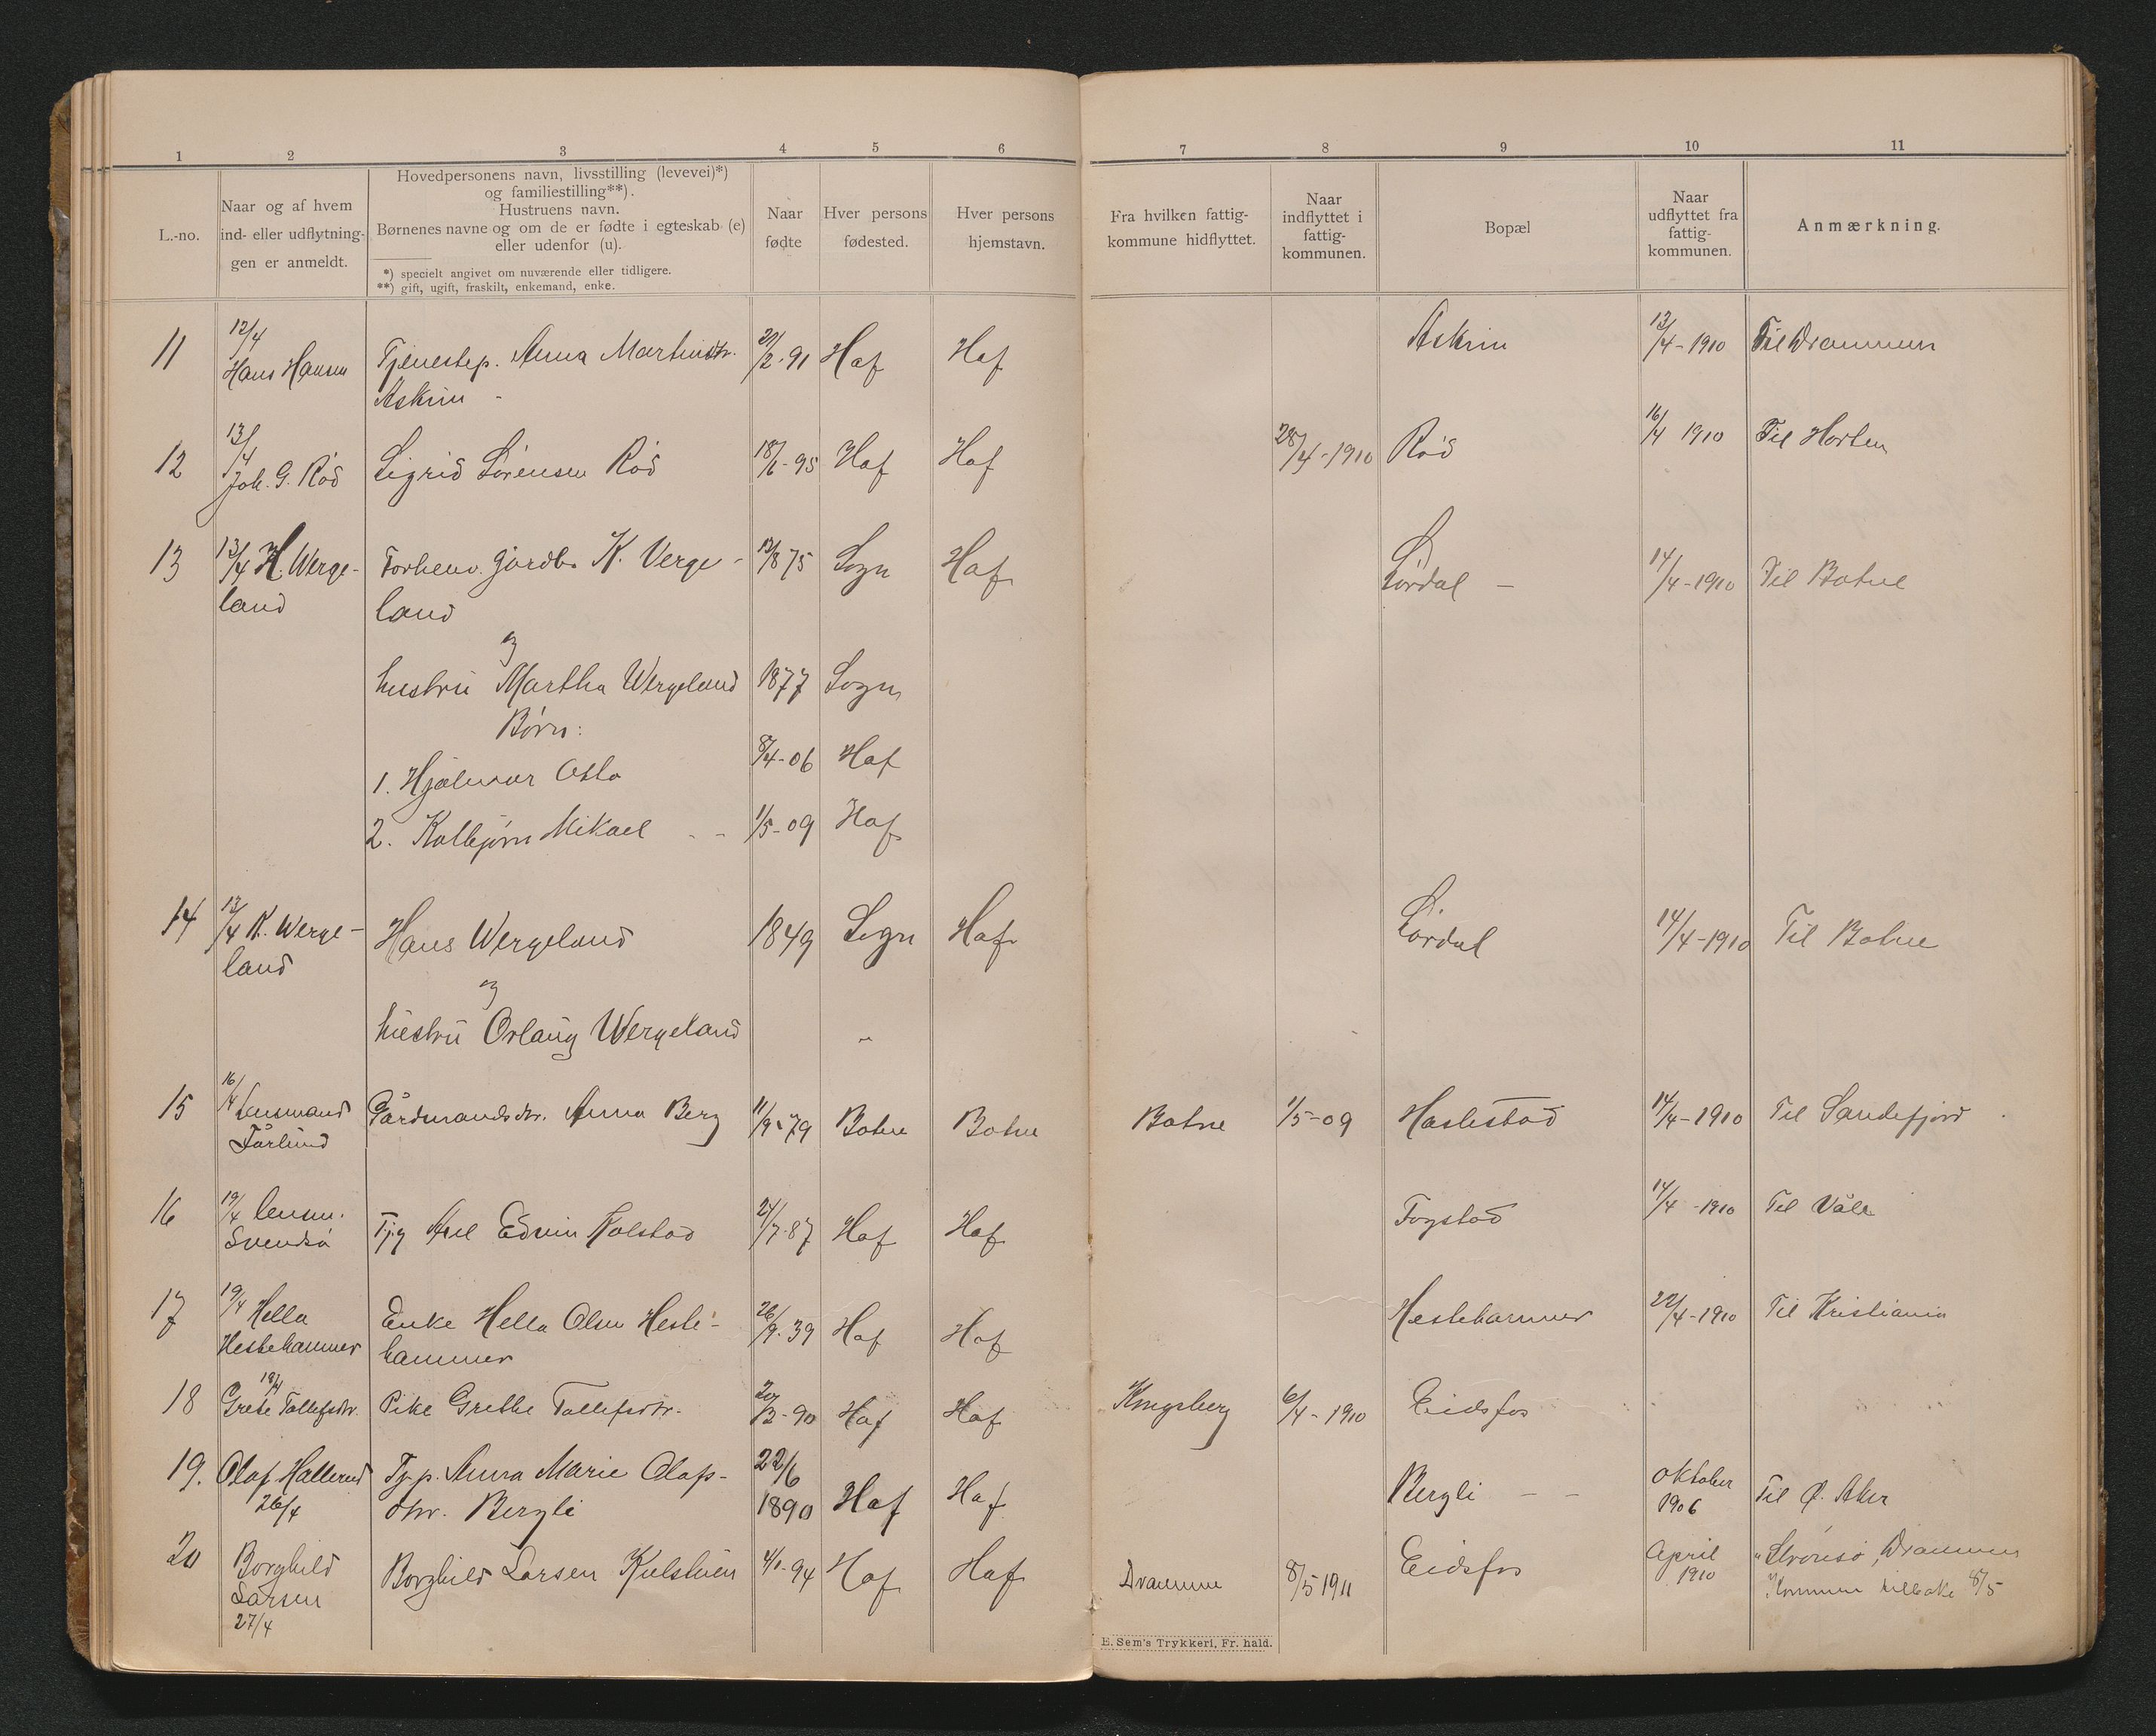 1 2 3 4 5 6 7 8 9 10 11
L.-no.
Naar og af hvem
ind- eller udflytnin-
gen er anmeldt.
Hovedpersonens navn, livsstilling (levevei)*)
og familiestilling**).
Hustruens navn.
Børnenes navne og om de er fødte i egteskab (e)
eller udenfor (u).
*) specielt angivet om nuværende eller tidligere.
**) gift, ugift, fraskilt, enkemand, enke.
Naar
fødte
Hver persons
fødested.
Hver persons
hjemstavn.
Fra hvilken fattig-
kommune hidflyttet.
Naar
indflyttet i
fattig-
kommunen.
Bopæl
Naar
udflyttet fra
fattig-
kommunen.
Anmærkning.
11 12/4 Hans Hansen Tjenestep. Anna Martinsdtr. 2-91 Hof Hof Askim 12/4-1910 Til Drammen
Askim
12 13/4 Joh. G. Rød Sigrid Sørensen Rød 18/6-95 Hof Hof 28/4-1910 Rød 16/4 1910 Til Horten
13 13/4 H. Werge- Forhenv. gårdbr. K. Verge- 12/8 75 Sogn Hof Lørdal - 14/4-1910 Til Botne
land land
og
hustru Martha Wergeland 1877 Sogn
Børn:
1. Hjalmar Olsto 8/4-06 Hof
2. Kolbjørn Mikael - - 1/5-09 Hof
14 13/4 K. Werge- Hans Wergeland 1849 Sogn Hof Lørdal 14/4-1910 Til Botne
land
og
hustru Orlaug Wergeland
15 16/4 Lensmand Gårdmandsdtr. Anna Berg 11/9-79 Botne Botne Botne 1/5-09 Haslestad 14/4-1910 Til Sandefjord
Førlund
16 19/4 lensm. Tj.g Axel Edvin Kolstad 24/7-87 Hof Hof Fogstad 14/4-1910 Til Våle
Svendsø
17 19/4 Hella Enke Hella Olsen Heste- 26/9-39 Hof Hof Hestehammer 22/4-1910 Til Kristiania
Hestehammer hammer
18 19/4 Grete Tollefsdtr. Pike Grethe Tollefsdtr. 20/3-90 Hof Hof Kongsberg 6/4-1910 Eidsfos
19. Olaf Hallerud Tj.p. Anna Marie Olafs- 22/6 Hof Hof Bergli - - Oktober Til Ø. Aker
26/4 dtr. Bergli 1890 1906
20 Borghild Borghild Larsen Kulsluen 4/1-94 Hof Hof Drammen 8/5 1911 Eidsfos April "Strømsø, Drammen
Larsen 1910 Kommen tilbake 8/5
27/4
E. Sem's Trykkeri, Fr. hald.